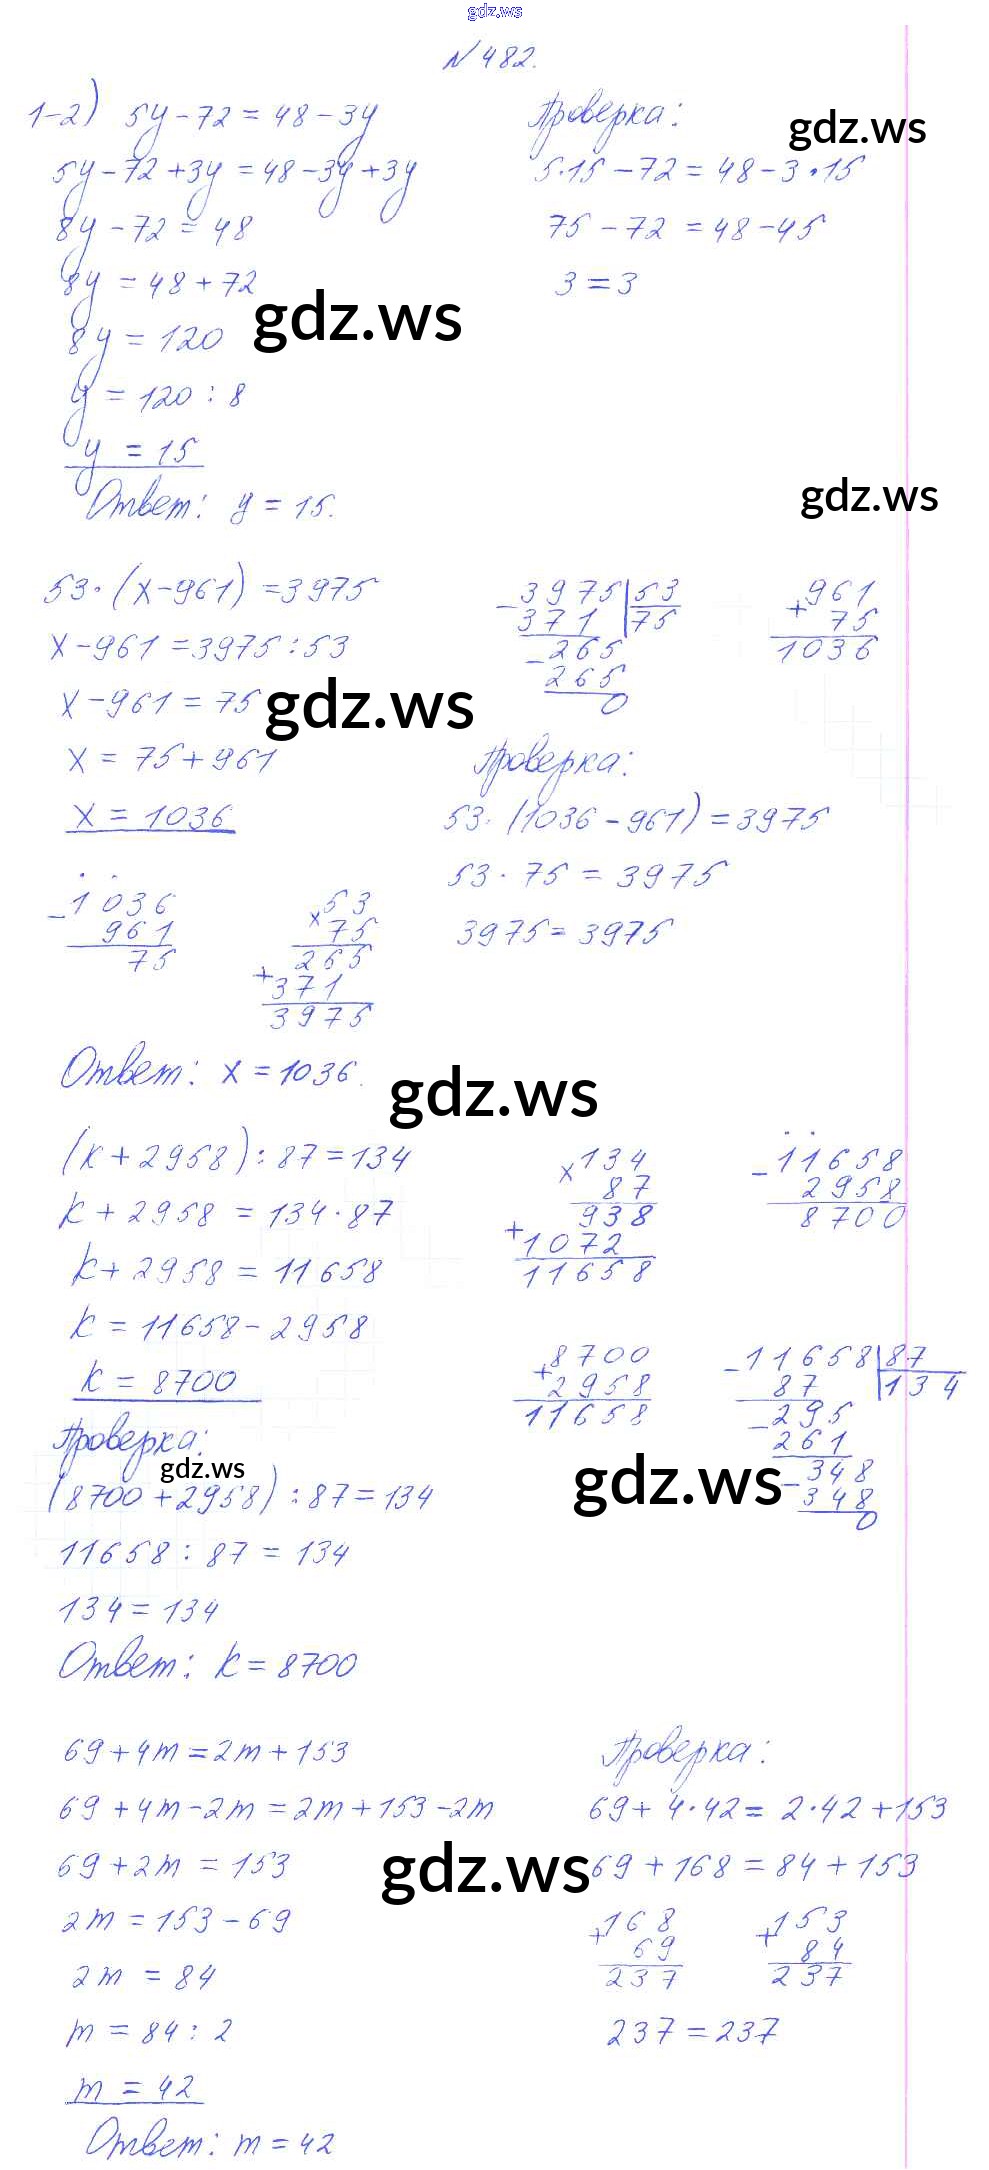 gdz.ws
N 482.
1-2) 5y - 72 = 48 - 3y
5y - 72 + 3y = 48 - 3y + 3y
8y - 72 = 48
8y = 48 + 72
8y = 120
y = 120 : 8
y = 15
Ответ: y = 15.
Проверка:
5·15 - 72 = 48 - 3·15
75 - 72 = 48 - 45
3 = 3
gdz.ws
gdz.ws
gdz.ws
53·(x - 961) = 3975
x - 961 = 3975 : 53
x - 961 = 75
x = 75 + 961
x = 1036
- 3975 | 53
371 | 75
- 265
265
0
+ 961
75
1036
gdz.ws
Проверка:
53·(1036 - 961) = 3975
53 · 75 = 3975
3975 = 3975
- 1036
961
75
x 53
75
265
+ 371
3975
Ответ: x = 1036.
gdz.ws
(k + 2958) : 87 = 134
k + 2958 = 134 · 87
k + 2958 = 11658
k = 11658 - 2958
k = 8700
x 134
87
938
+ 1072
11658
- 11658
2958
8700
+ 8700
2958
11658
- 11658 | 87
87 | 134
- 295
261
- 348
348
0
Проверка:
gdz.ws
gdz.ws
(8700 + 2958) : 87 = 134
11658 : 87 = 134
134 = 134
Ответ: k = 8700
69 + 4m = 2m + 153
69 + 4m - 2m = 2m + 153 - 2m
69 + 2m = 153
2m = 153 - 69
2m = 84
m = 84 : 2
m = 42
Ответ: m = 42
gdz.ws
Проверка:
69 + 4·42 = 2·42 + 153
69 + 168 = 84 + 153
+ 168
69
237
+ 153
84
237
237 = 237